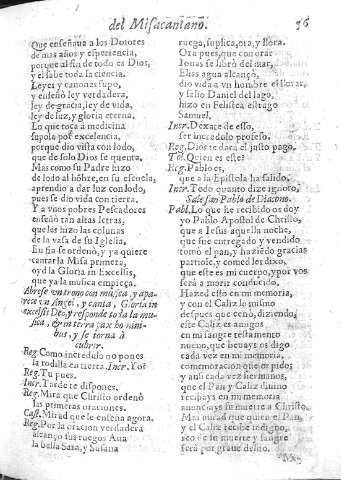 del Missacantano. 36
Que enseñaua a los Dotores
de mas años y esperiencia,
porque al fin de todo es Dios,
y el sabe toda la ciencia.
Leyes y canones supo,
y enseñó ley verdadera,
ley de gracia, ley de vida,
ley de luz, y gloria eterna.
Lo que toca a medicina
supola por excelencia,
porque dio vista con lodo,
que de solo Dios se quenta.
Mas como su Padre hizo
de lodo al hõbre, en su escuela,
aprendio a dar luz con lodo,
pues se dio vida con tierra.
Y a vuos pobres Pescadores
enseñò tan altas letras,
que les hizo las colunas
de la vasa de su Iglesia,
En fin se ordenò, y ya quiere
cantar la Missa primera,
oyd la Gloria in Excelsis,
que ya la musica empieça.
Abrese vn trono con musica, y apa-
rece vn Angel, y canta, Gloria in
excelsis Deo, y responde toda la mu-
sica, & in terra pax ho nini-
bus, y se torna à
cubrir.
Reg. Como incredulo no pones
la rodilla en tierra. Incr. Yo?
Reg. Tu pues.
Incr. Tarde te dispones.
Reg. Mira que Christo ordenò
las primeras oraciones.
Cast. Mirad que le enseña agora.
Reg. Por la oracion verdadera
alcançò sus ruegos Ana
la bella Sara, y Susana
ruega, suplica, ora, y llora.
Ora pues, que con orar
Ionas se librò del mar,
Elias agua alcançò,
dio vida a vn hombre el llorar,
y salio Daniel del lago,
hizo en Felistea estrago
Samuel.
Incr. Dexate de esso,
ser incredulo professo.
Reg. Dios te dara el justo pago.
Tol. Quien es este?
Reg. Pablo es,
que a la Epistola ha salido.
Incr. Todo quanto dize ignoro.
Sale san Pablo de Diacono.
Pabl. Lo que he recibido os doy
yo Pablo Apostol de Christo,
que a Iesus aquella noche,
que fue entregado y vendido
tomò el pan, y haziẽdo gracias
partiole, y comed les dixo,
que este es mi cuerpo, y por vos
serà a morir conducido.
Hazed esto en mi memoria,
y con el Caliz lo mismo
despues que cenò, diziendo,
este Caliz es amigos
en mi sangre testamento
nueuo, que beuays os digo
cada vez en mi memoria,
comemoracion que os pido,
y ansi cada vez hermanos,
que el Pan y Caliz diuino
recibays en mi memoria
anunciays la muerte a Christo.
Mas mirad que quien el Pan
y el Caliz recibe indigno,
reo de su muerte y sangre
serà por graue delito.